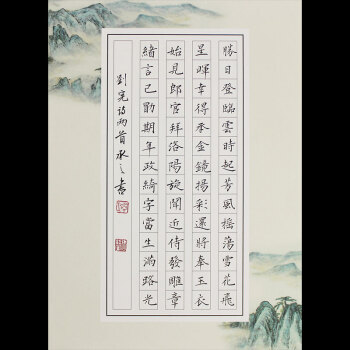 勝日登臨雲時起芳風搖蕩雪花飛
呈暉幸得承金鏡揚彩還將奉玉衣
始見郎官拜洛陽旋聞近侍發雕章
緒言已勖期年政綺字當生滿路光
劉憲詩兩首之書